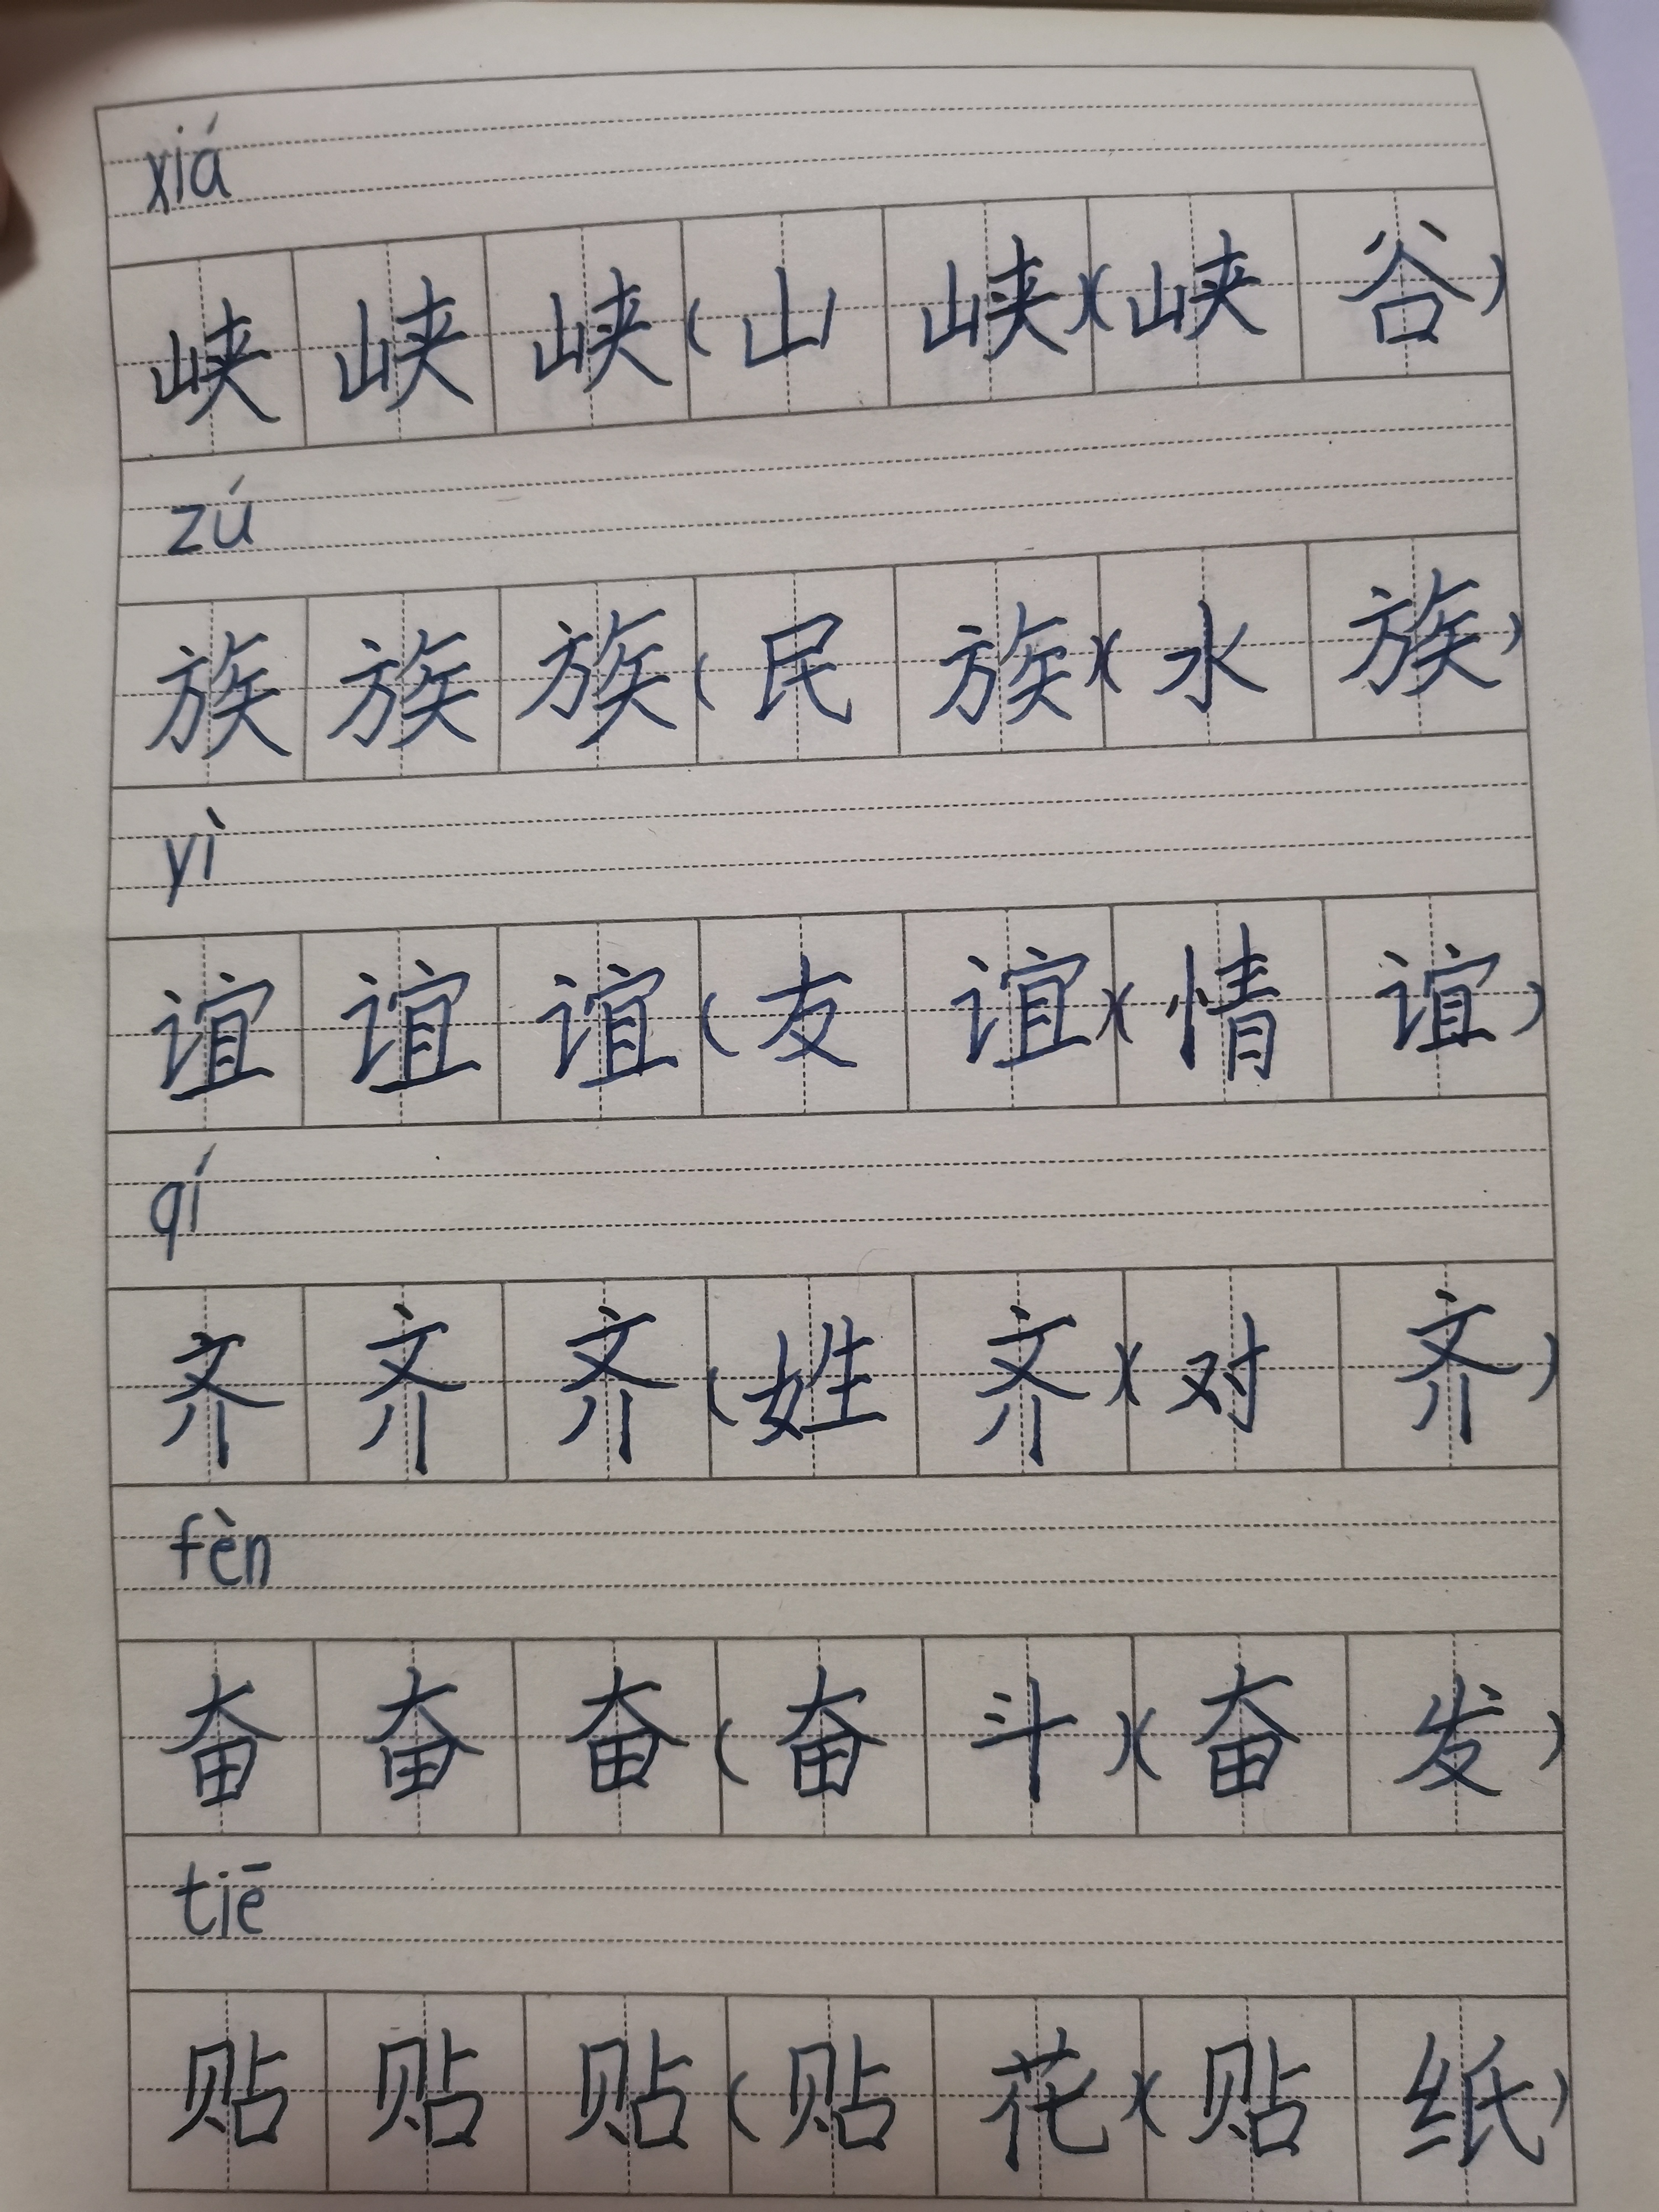 xiá
峡峡峡(山峡)(峡谷)
zú
族族族(民族)(水族)
yì
谊谊谊(友谊)(情谊)
qí
齐齐齐(姓齐)(对齐)
fèn
奋奋奋(奋斗)(奋发)
tiē
贴贴贴(贴花)(贴纸)